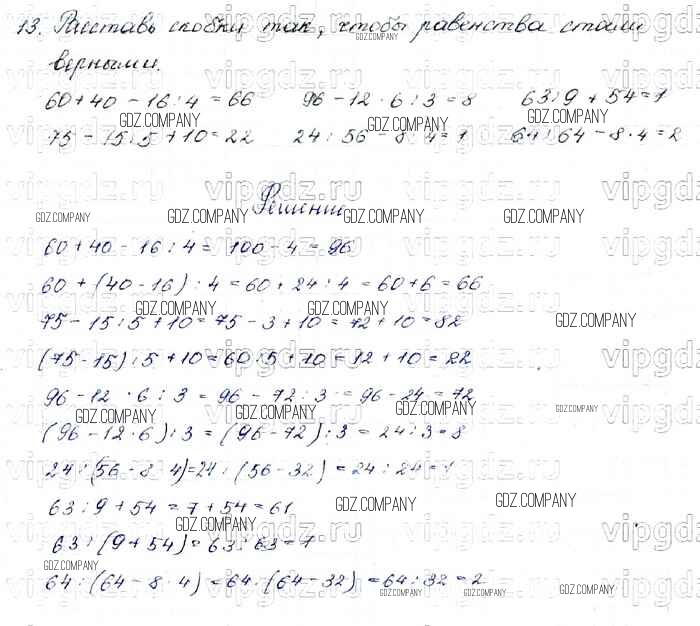 13. Расставь скобки так, чтобы равенства стали
верными.
60+40 - 16 : 4 = 66 96 - 12 · 6 : 3 = 8 63 : 9 + 54 = 1
75 - 15 : 5 + 10 = 22 24 : 56 - 8 · 4 = 1 64 : 64 - 8 · 4 = 2
Решение
60 + 40 - 16 : 4 = 100 - 4 = 96
60 + (40 - 16) : 4 = 60 + 24 : 4 = 60 + 6 = 66
75 - 15 : 5 + 10 = 75 - 3 + 10 = 72 + 10 = 82
(75 - 15) : 5 + 10 = 60 : 5 + 10 = 12 + 10 = 22
96 - 12 · 6 : 3 = 96 - 72 : 3 = 96 - 24 = 72
(96 - 12 · 6) : 3 = (96 - 72) : 3 = 24 : 3 = 8
24 : (56 - 8 · 4) = 24 : (56 - 32) = 24 : 24 = 1
63 : 9 + 54 = 7 + 54 = 61
63 : (9 + 54) = 63 : 63 = 1
64 : (64 - 8 · 4) = 64 : (64 - 32) = 64 : 32 = 2
vipgdz.ru
GDZ.COMPANY